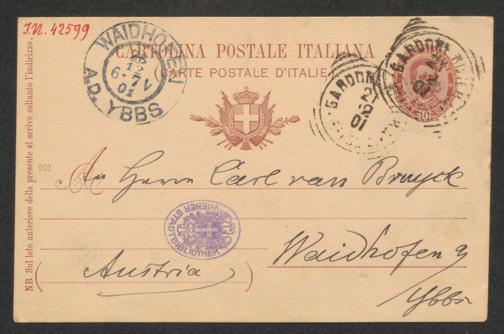 I.N. 42599
WAIDHOFEN
A.D. YBBS
6-7V
01
CARTOLINA POSTALE ITALIANA
(CARTE POSTALE D'ITALIE)
GARDONE
21
12
01
GARDONE
901
NB. Sul lato anteriore della presente si scrive soltanto l'indirizzo.
An Herrn Carl van Bruyck
WIENER STADTBIBLIOTHEK
Waidhofen a/
Ybbs
(Austria)